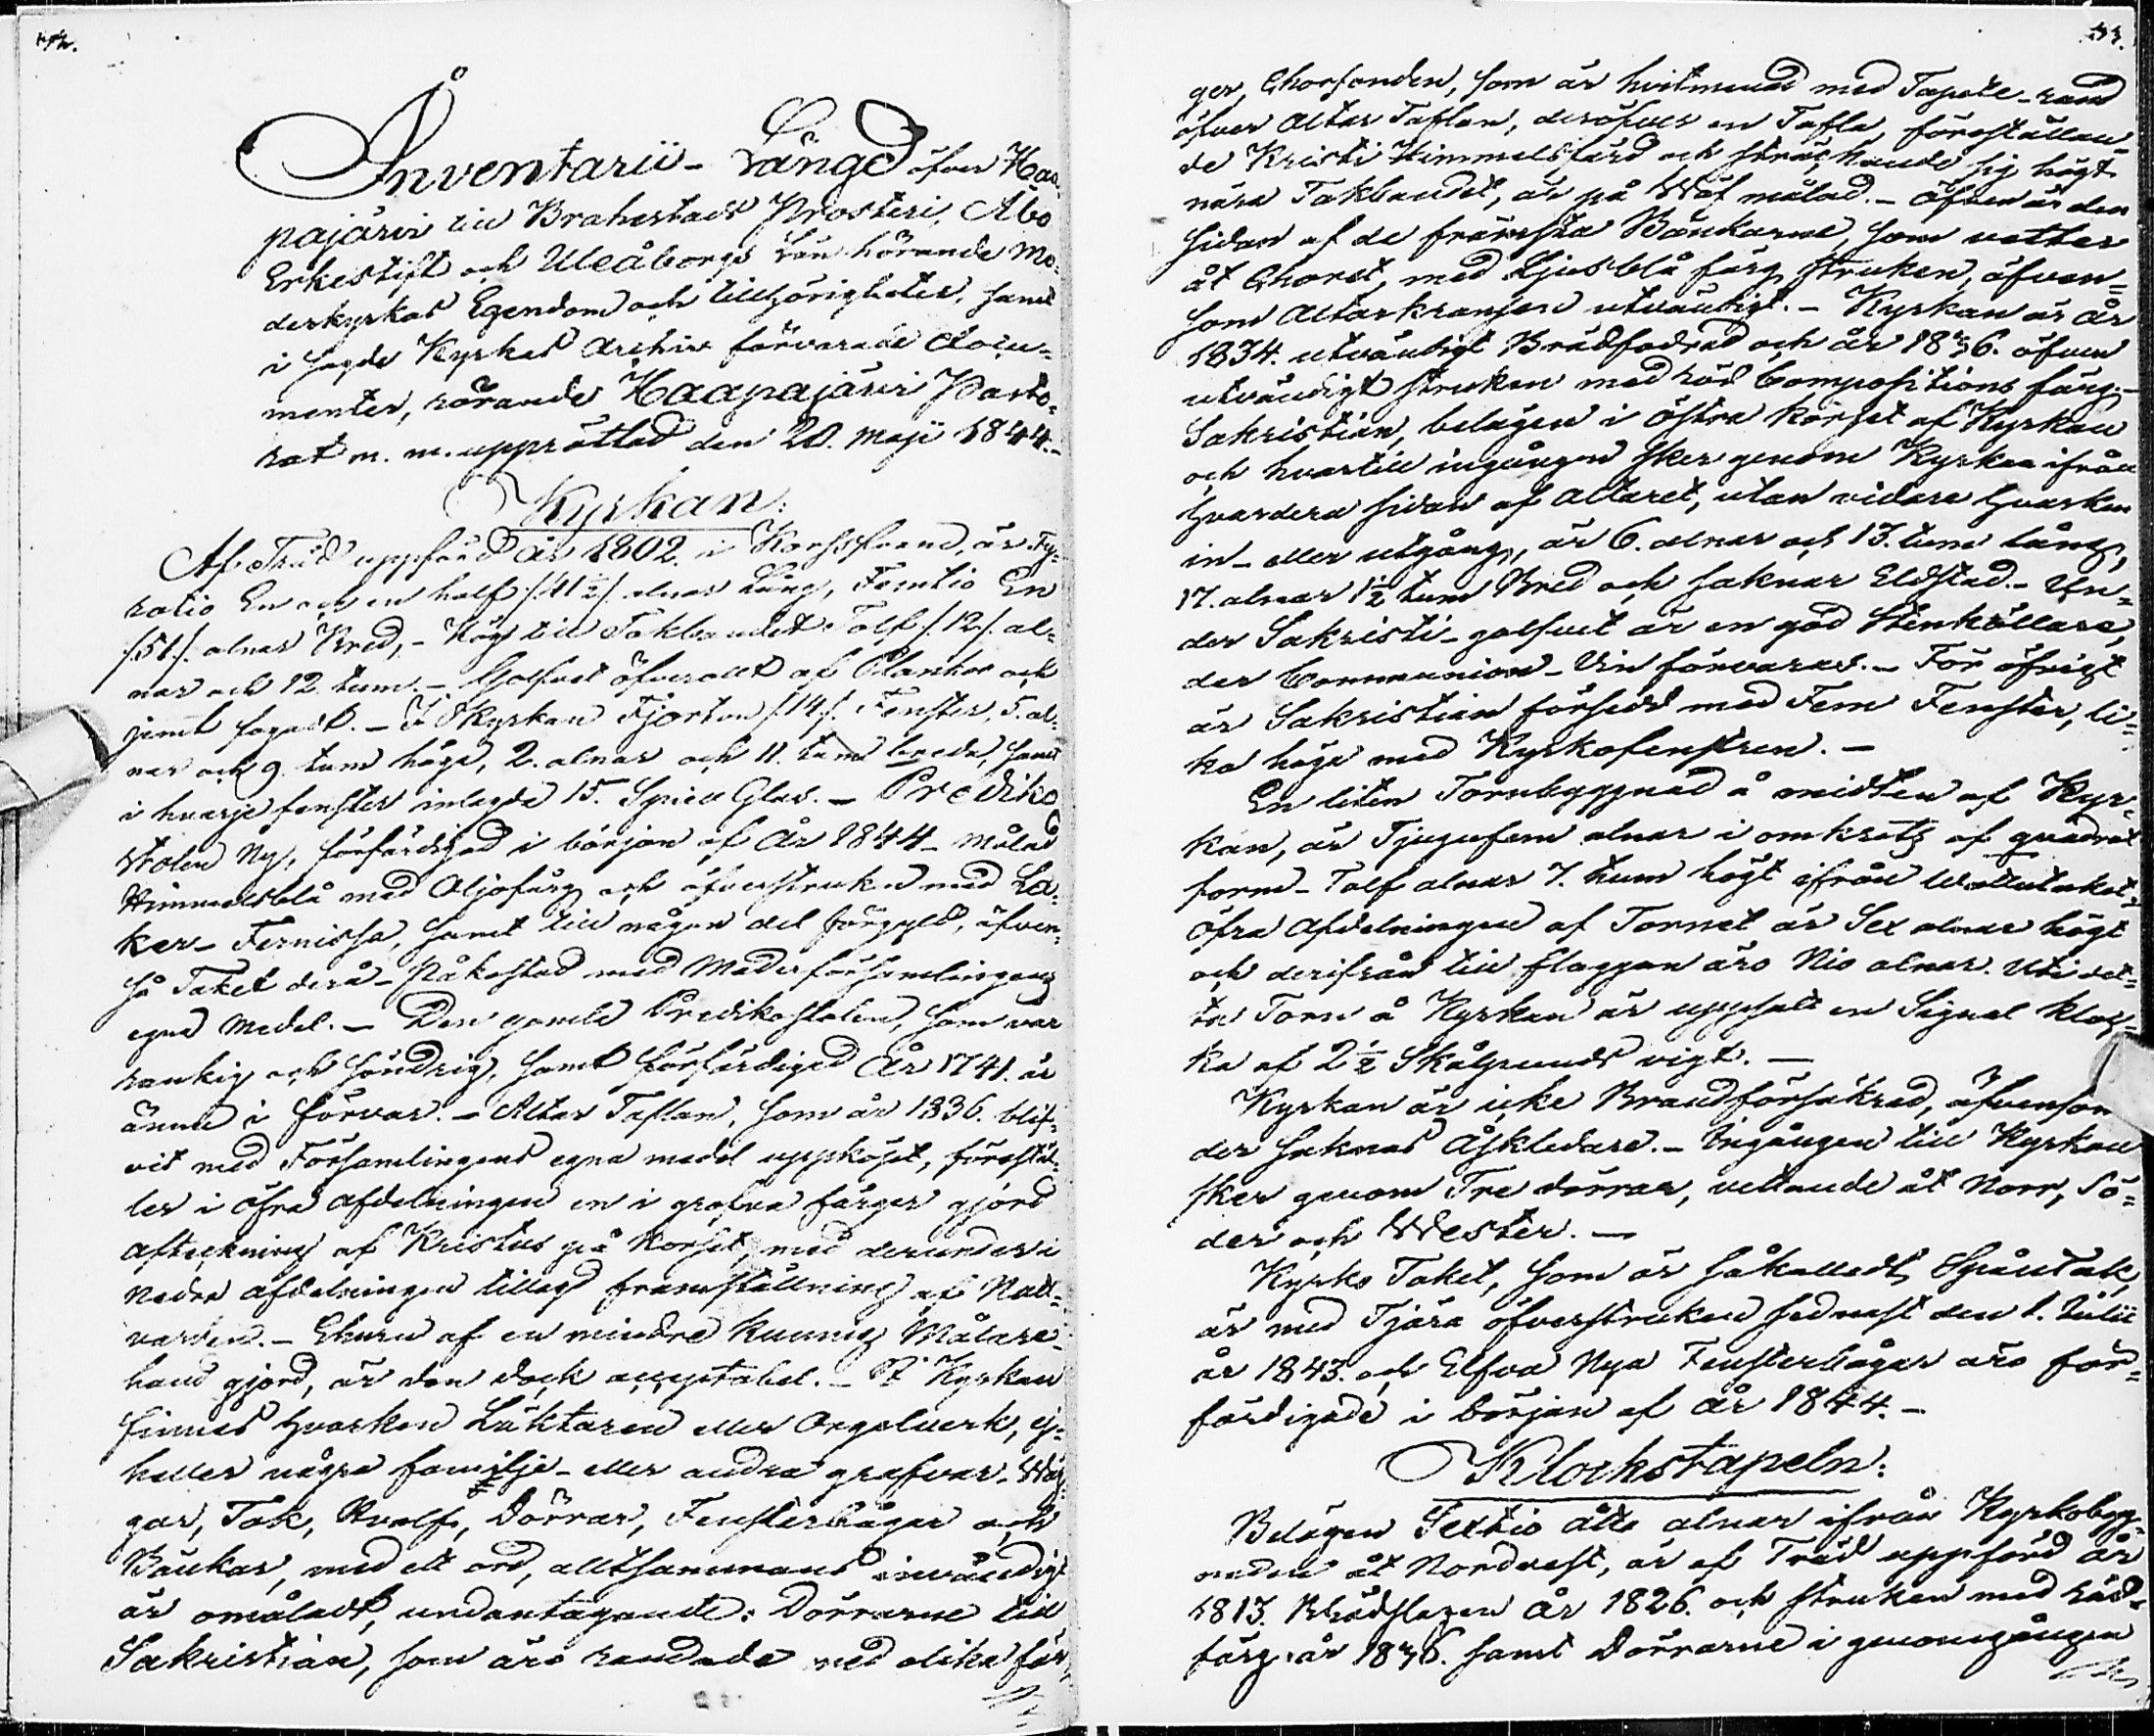 Inventarii-Längd öfver Haa=
pajärvi till Brahestads Prosteri, Åbo
Erkestift och Uleåborgs Län hörande Mo=
derkyrkas Egendom och tillhörigheter, samt
i sagde Kyrkas Archiv förvarade docu=
menter, rörande Haapajärvi Pasto=
rat m. m. upprättad den 20. Maji 1844.-
Kyrkan:
Af Träd uppförd år 1802. i Korssform, är Fy=
ratio En och en half /.41½/. alnar Lång, Femtio En
/.51./. alnar Bred, - Hög till Takbandet Tolf /.12./. al=
nar och 12. tum. - Golfvet öfverallt af Plankor och
jemt fogadt. - I Kyrkan Fjorton /.14./. Fenster, 5. al=
nar och 9. tum höga, 2. alnar och 11. tum breda, samt
i hvarje fenster inlagde 15. Glas. - Prediko
Stolen Ny, förfärdigad i början af År 1844 - Målad
Himmelsblå med Oljofärg och öfverstruken med La=
ker-Fernissa, samt till någon del förgyld, äfven=
så Taket derå - Påkostad med Moderförsamlingens
egna Medel. - Den gamla Predikostolen, som var
rankig och söndrig, samt förfärdigad År 1741. är
ännu i förvar. - Altar Taflan, som år 1836. blif=
vit med Församlingens egna medel uppköpt, förestäl=
ler i öfra Afdelningen en i grofva färger gjord
afteckning af Kristus på Korset, med derunder i
Nedra afdelningen tillagd framställning af Natt=
varden. - Ehuru af en mindre kunnig Målare=
hand gjord, är den dock acceptabel. - I Kyrkan
finnes hvarken Läktaren eller Orgelverk, ej=
heller några familje- eller andra grafvar. Wäg=
gar, Tak, Hvalf, Dörrar, Fensterbågar och
Bänkar, med ett ord, alltsammans invändigt
är omåladt, undantagande: Dörrarne till
Sakristian, som äro randade med olika fär=
ger, Chorfonden, som är hvitmenad med Tapete-rand
öfver Altar Taflan, deröfver en Tafla, föreställan=
de Kristi Himmelsfärd och sträckande sig högt
nära Takbandet, är på Wäf målad. - Äfven är den
sidan af de främsta Bänkarne, som vetter
åt Choret, med Ljusblå färg struken, äfven=
som Altarkransen utvändigt. - Kyrkan är År
1834. utvändigt Brädfodrad och år 1836. äfven
utvändigt struken med röd Compositions färg. -
Sakristian, belägen i östra korset af Kyrkan
och hvartill ingången sker genom Kyrkan ifrån
hvardera sidan af Altaret, utan vidare hvarken
in- eller utgång, är 6. alnar och 13. tum lång,
17. alnar 1½ tum Bred och saknar Eldstad. - Un=
der Sakristi-golfvet är en god Stenkällare,
der Communion-Vin förvaras. - För öfrigt
är Sakristian försedd med Fem Fenster, li=
ka höga med Kyrkofenstren. -
En liten Tornbyggnad å midten af Kyr=
kan, är Tjugufem alnar i omkrets af quadrat
form - Tolf alnar 7. tum högt ifrån Wattutaket,
Öfra Afdelningen af Tornet är Sex alnar högt
och derifrån till flaggan äro Nio alnar. Uti det=
ta Torn å Kyrkan är upphalt en Signal Kloc=
ka af 2½ Skålpunds vigt. -
Kyrkan är icke Brandförsäkrad, äfvensom
der saknas Åskledare. - Ingången till Kyrkan
sker genom Tre dörrar, vettande åt Norr, Sö=
der och Wester. -
Kyrko Taket, som är såkalladt Spåntak,
är med Tjära öfverstruken sednast den 1. Julii
år 1843. och Elfva Nya Fensterbågar äro för=
färdigade i början af År 1844. -
Klockstapeln:
Belägen Sextio åtta alnar ifrån Kyrkobygg=
naden åt Nordvest, är af Träd uppförd år
1813. Brädslagen År 1826. och struken med röd=
färg år 1836. samt Dörrarne i genomgången